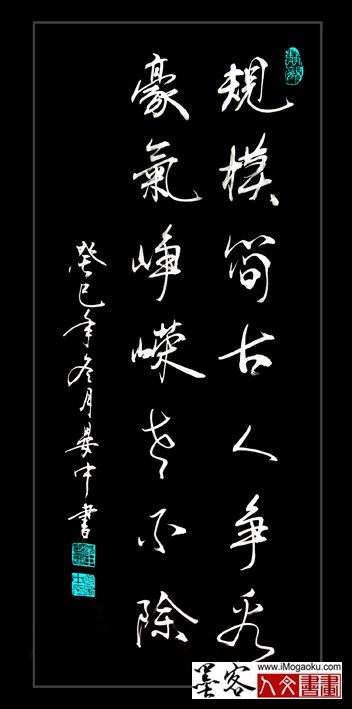 規模简古人争看
豪氣峥嶸老不除
癸巳年冬月晏中書
墨客
www.iMogaoku.com
人文書畫